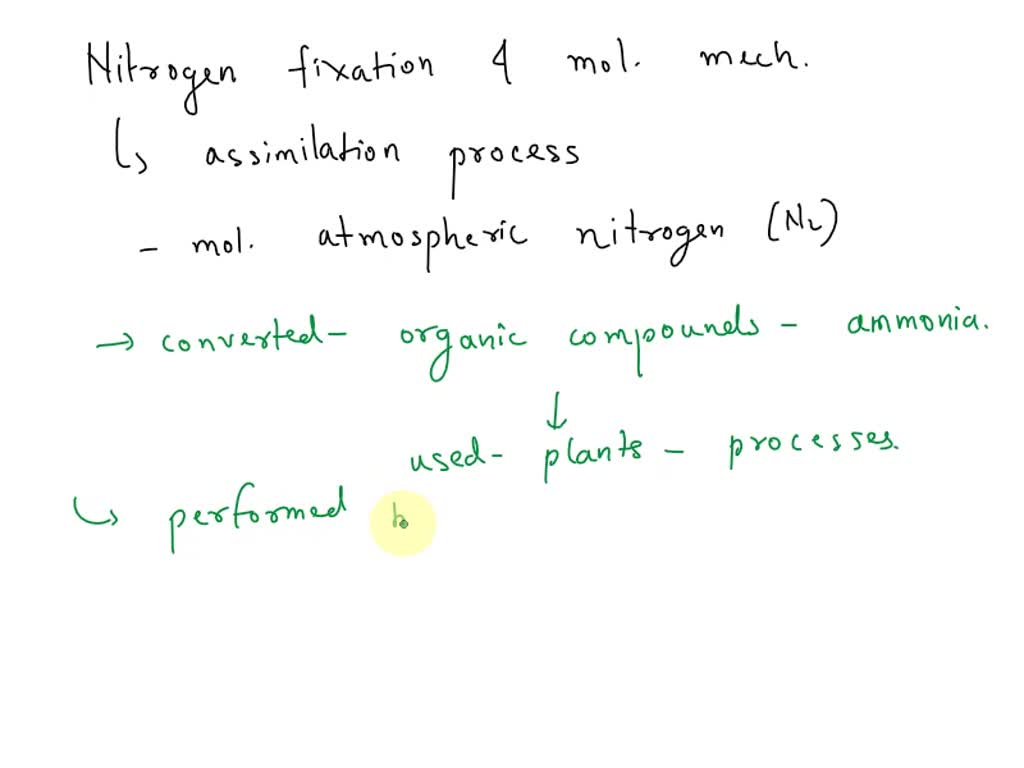 Nitrogen fixation & mol. mech.
↳ assimilation process
- mol. atmospheric nitrogen (N₂)
→ converted - organic compounds - ammonia.
↓
used - plants - processes.
↳ performed